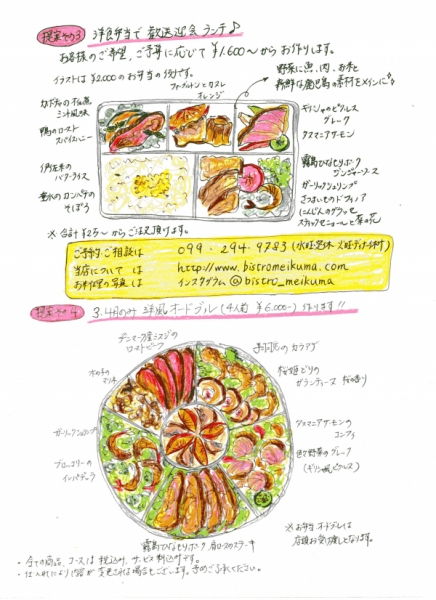 提案その3 洋食弁当で歓送迎会ランチ♪
お客様のご希望、ご予算に応じて¥1,600〜からお作りします。
イラストは¥2,000のお弁当の1例です。
野菜に魚、肉、お米と
新鮮な鹿児島の素材をメインに
オレンジ
三州風味
鴨のロースト
スパイスハニー
伊佐米の
バターライス
垂水のカンパチの
そぼろ
ギリシャのピクルス
グレーク
タスマニアサーモン
霧島ひなもりポーク
ジンジャーソース
ガーリックシュリンプ
さつまいものドフィノア
にんじんのグラッセ
スティックセニョールと菜の花
からご注文頂けます。
ご予約ご相談は 099-294-9783
当店については http://www.bistromeikuma.com
お料理の写真は インスタグラム@bistro_meikuma
提案その4 3,4月のみ 洋風オードブル(4人前 ¥6,000-)作ります!!
ローストビーフ
きのこの
マリネ
ガーリックシュリンプ
ブロッコリーの
カラアゲ
桜姫どりの
ガランティーヌ 桜の香り
タスマニアサーモンの
コンフィ
色々野菜のグレーク
(ギリシャ風ピクルス)
霧島ひなもりポーク 肩ロースのステーキ
※お弁当、オードブルは
店頭お受け渡しとなります。
・全ての商品、コースは税込み、サービス料込みです。
・仕入れにより内容が変更される場合もございます。予めご了承ください。